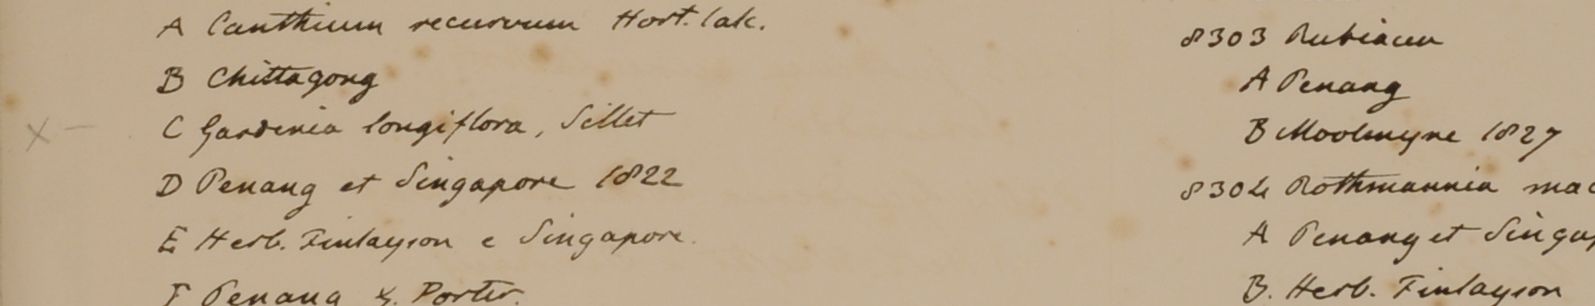 A Canthium recurvum Hort. Calc.
B Chittagong
C Gardenia longiflora, Sillet
D Penang et Singapore 1822
E Herb. Finlayson e Singapore.
F Penang G. Porter.
8303 Rubiacea
A Penang
B Moolmyne 1827
8304 Rothmannia mac
A Penang et Singap
B. Herb. Finlayson